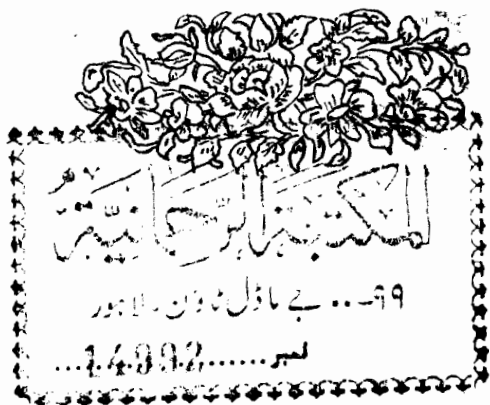 المكتبة الرحمانية
۹۹... جے ماڈل ٹاؤن۔ لاہور
نمبر......14992...